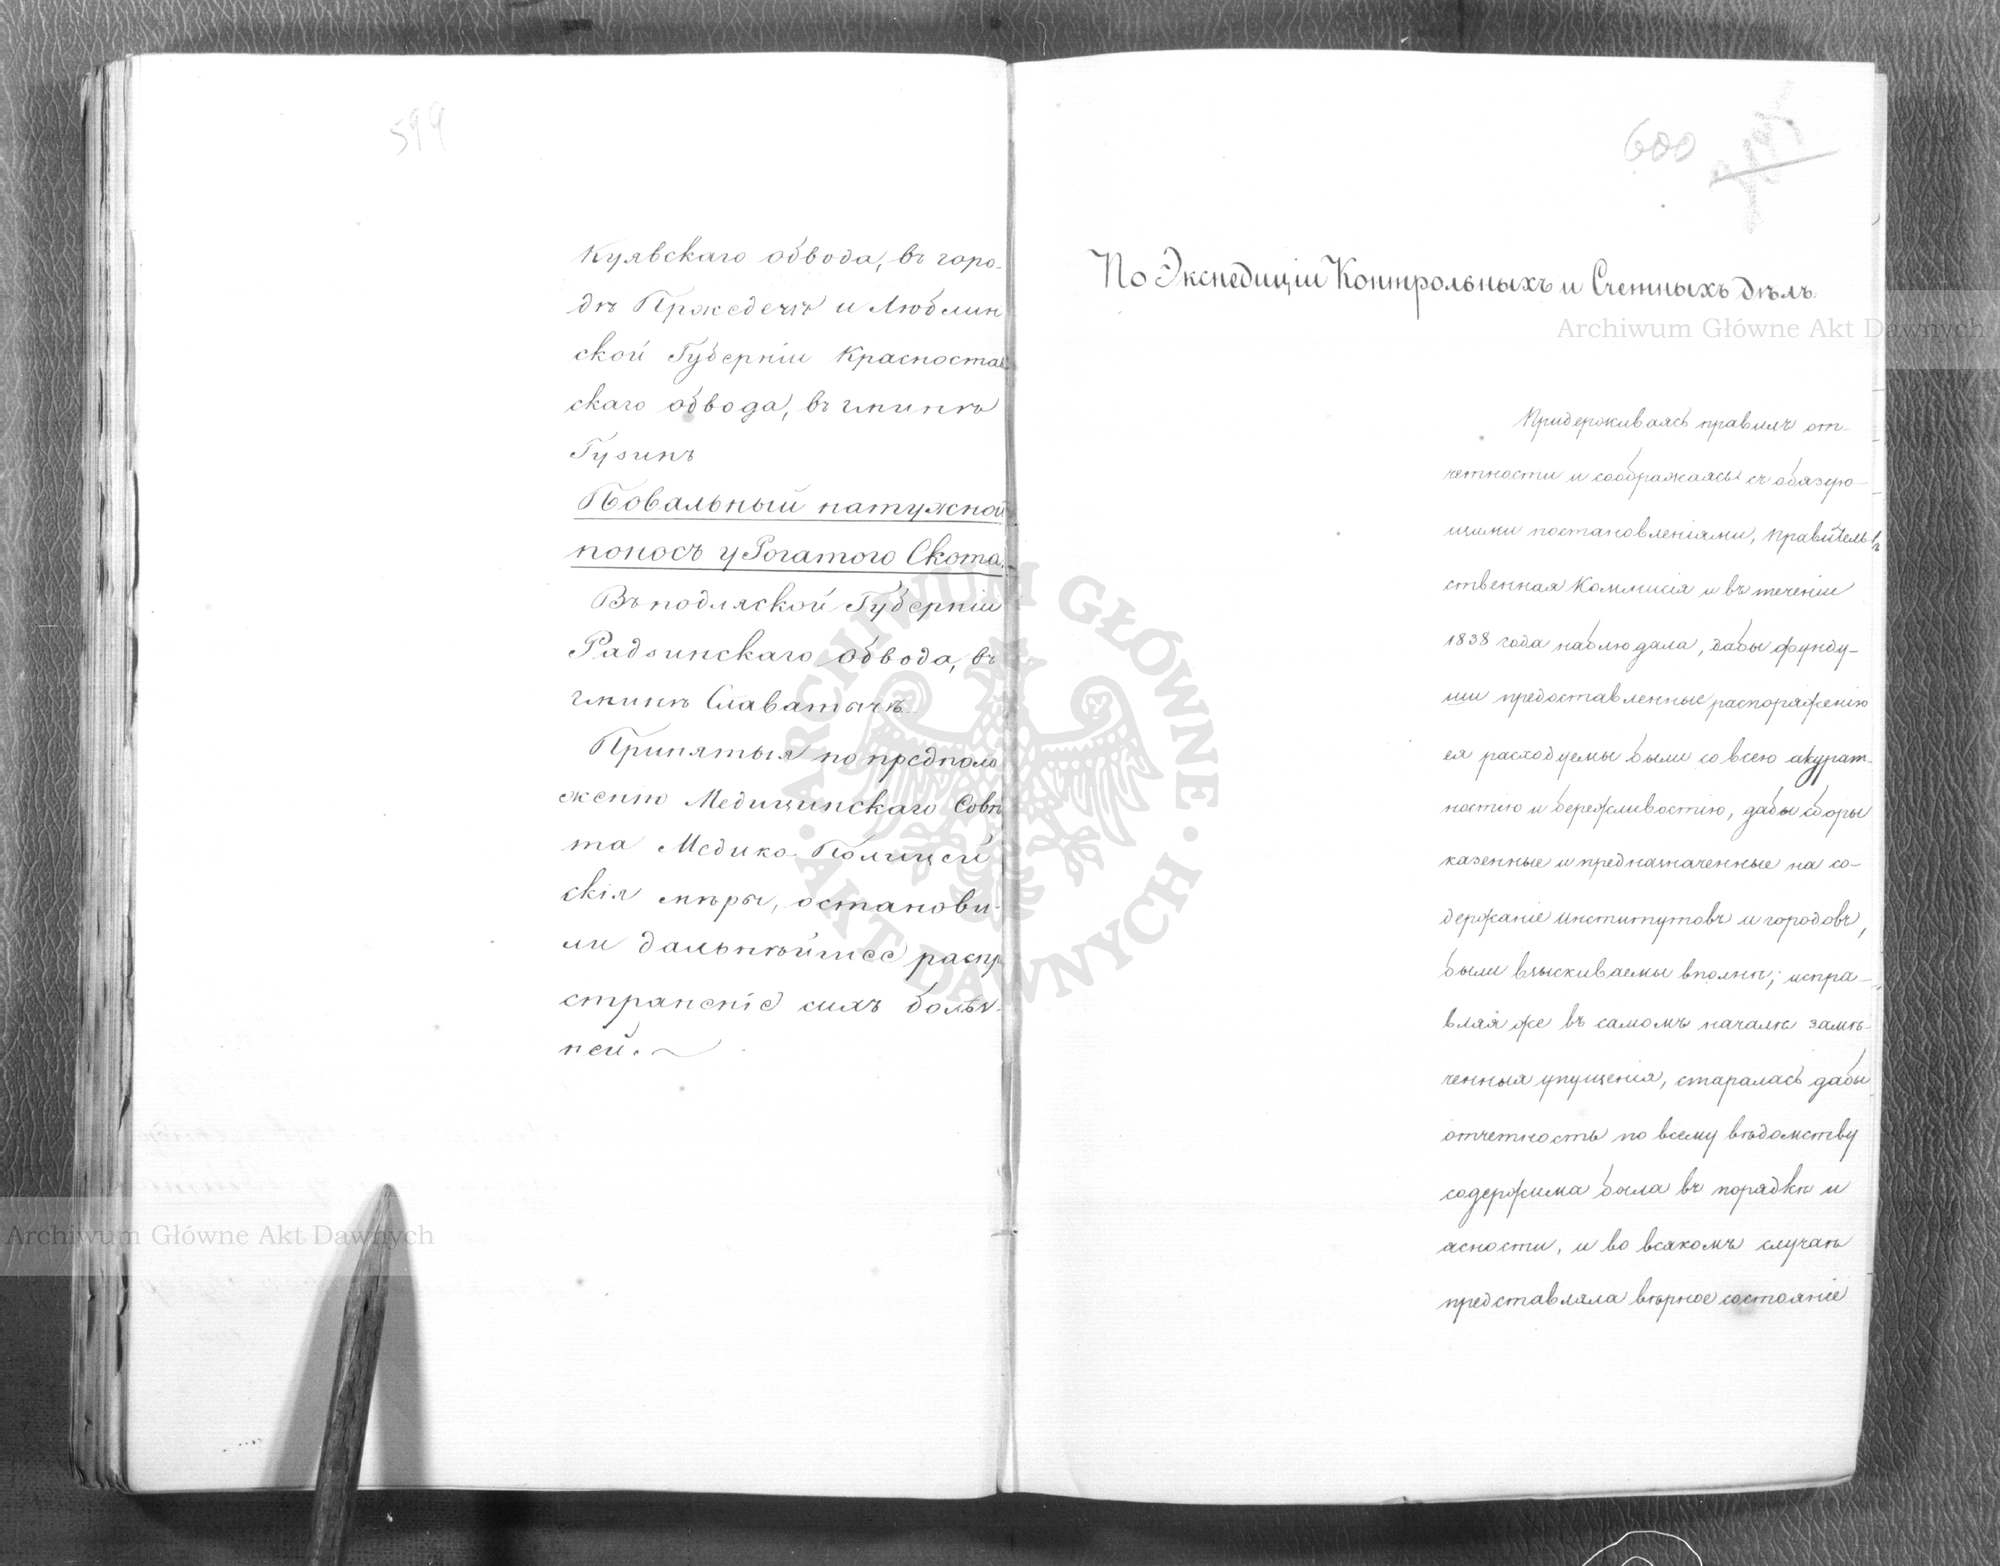 599
Куявскаго обвода, въ горо-
дѣ Пржедечѣ и Люблин
ской Губерніи Красностав
скаго обвода, въ гминѣ
Гузинъ
Повальный натужной
поносъ у Рогатого Скота.
Въ подляской Губерніи
Радзинскаго обвода, въ
гминѣ Славатычѣ.
Принятыя по предполо
женію Медицинскаго Совѣ
та Медико-Полицей
скія мѣры, останови-
ли дальнѣйшее распр
страненіе сихъ болѣз-
ней.
600
По Экспедиціи Контрольныхъ и Счетныхъ дѣлъ.
Придерживаясь правилъ от-
четности и соображаясь съ обязую-
щими постановленіями, Правитель-
ственная Коммисія и въ теченіи
1838 года наблюдала, дабы фунду-
ши предоставленные распоряженію
ея расходуемы были со всею акурат-
ностію и бережливостію, дабы сборы
казенные и предназначенные на со-
держаніе институтовъ и городовъ,
были взыскиваемы вполнѣ; испра-
вляя же въ самомъ началѣ замѣ-
ченныя упущенія, старалась дабы
отчетность по всему вѣдомству
содержима была въ порядкѣ и
ясности, и во всякомъ случаѣ
представляла вѣрное состояніе
Archiwum Główne Akt Dawnych
Archiwum Główne Akt Dawnych
ARCHIWUM GŁÓWNE AKT DAWNYCH